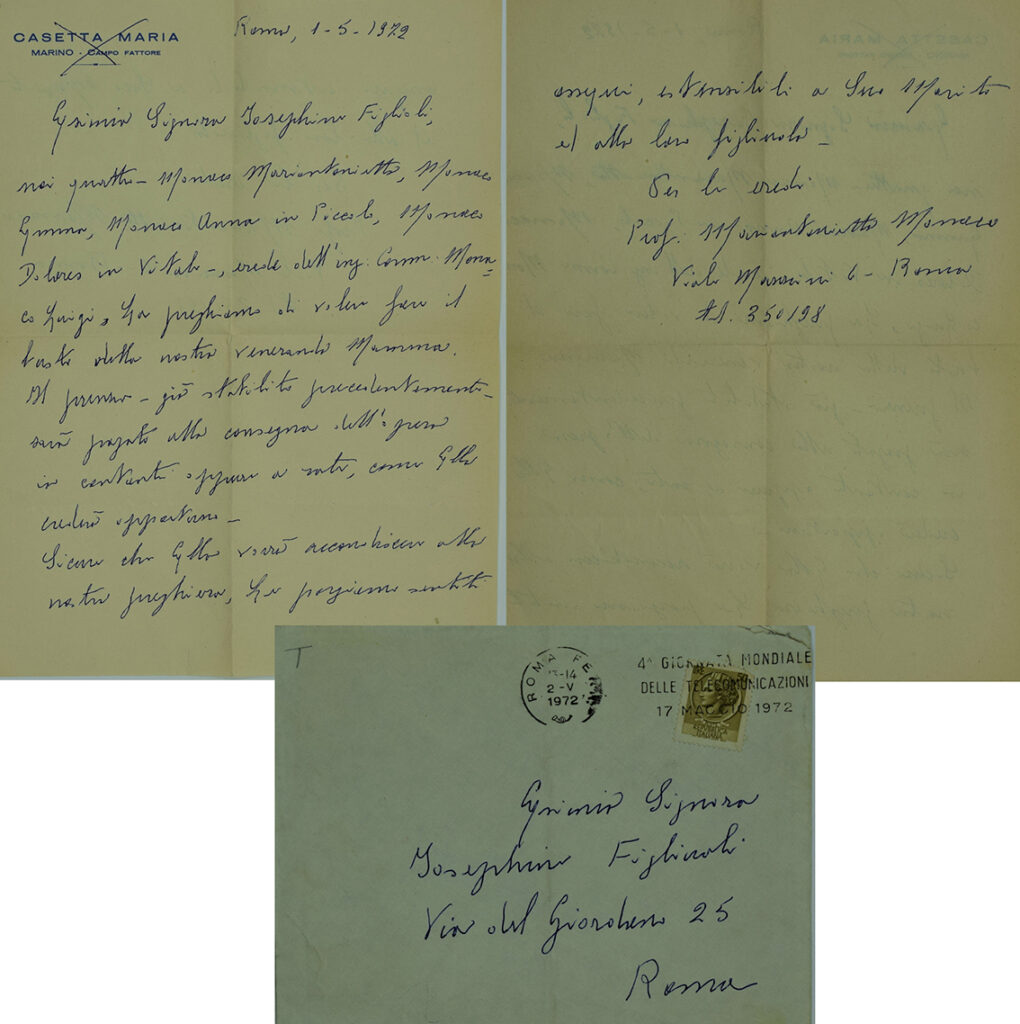 CASETTA MARIA
MARINO - CAMPO FATTORE
Roma, 1-5-1972
Esimia Signora Josephine Figlioli,
noi quattro - Monaco Mariantonietta, Monaco
Emma, Monaco Anna in Piccolo, Monaco
Dolores in Vitale -, erede dell'ing. Comm. Mona-
co Luigi, La preghiamo di voler fare il
busto della nostra veneranda Mamma.
Il prezzo - già stabilito precedentemente -
sarà pagato alla consegna dell'opera
in contanti oppure a rate, come Ella
crederà opportuno -
Sicure che Ella vorrà accondiscere alla
nostra preghiera, Le porgiamo sentiti
ossequi, estensibili a Suo Marito
ed alla loro figliuola -
Per le eredi
Prof. Mariantonietta Monaco
Viale Mazzini 6 - Roma
tel. 350198
T
ROMA FE
-14
2-V
1972
4ª GIORNATA MONDIALE
DELLE TELECOMUNICAZIONI
17 MAGGIO 1972
REPUBBLICA
ITALIANA
Esimia Signora
Josephine Figliuoli
Via del Giordano 25
Roma